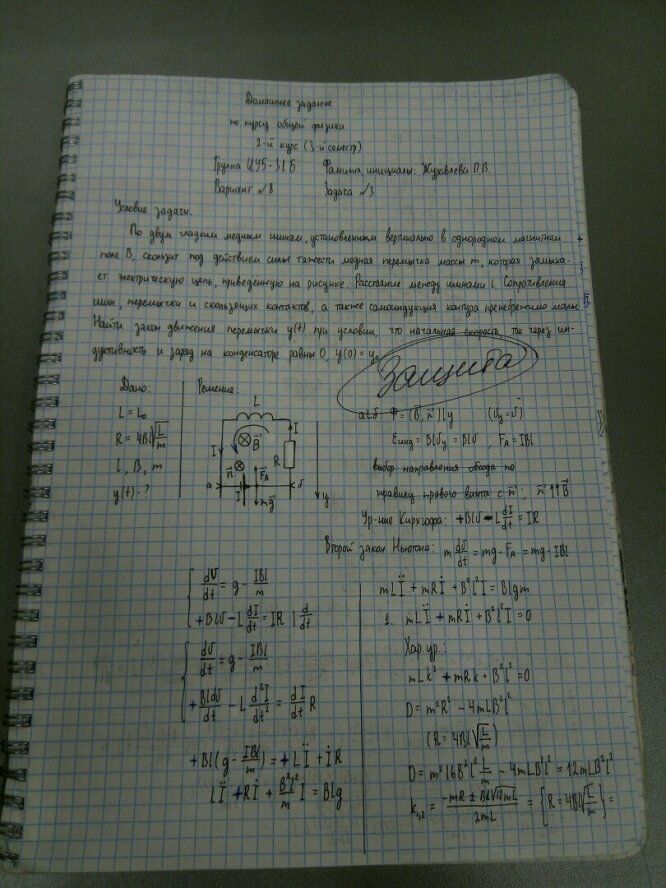 Домашнее задание
по курсу общей физики
2-й курс (3-й семестр)
Группа ИУ5-31Б Фамилия инициалы: Журавлева
Вариант №8 Задача №3
Условие задачи.
По двум гладким медным шинам, установленным вертикально в однородном магнитном
поле B, скользит под действием силы тяжести медная перемычка массы m, которая замыка-
ет электрическую цепь, приведённую на рисунке. Расстояние между шинами l. Сопротивления
шин, перемычки и скользящих контактов, а также самоиндукция контура пренебрежимо малы.
Найти закон движения перемычки y(t) при условии, что начальная скорость, ток через ин-
дуктивность и заряд на конденсаторе равны 0, y(0) = y₀
Защита
Дано: Решение:
L = L₀
R = 4Bl√(L/m)
l, B, m
y(t) - ?
L
I I
B⃗
R
n⃗ F⃗A
а I б
mg⃗ y
Φ = (B⃗, n⃗)ly (υy = υ)
Eинд = Blυy = Blυ ; FA = IBl
выбор направления обхода по
правилу правого винта с n⃗; n⃗↑↑B⃗
Ур-ние Кирхгофа: +Blυ - L dI/dt = IR
Второй закон Ньютона: m dυ/dt = mg - FA = mg - IBl
dυ/dt = g - IBl/m
+Blυ - L dI/dt = IR | d/dt
dυ/dt = g - IBl/m
+Bldυ/dt - L d²I/dt² = dI/dt R
+Bl(g - IBl/m) = +LÏ + İR
LÏ + Rİ + B²l²/m I = Blg
mLÏ + mRİ + B²l²I = Blgm
1. mLÏ + mRİ + B²l²I = 0
Хар. ур.:
mLk² + mRk + B²l² = 0
D = m²R² - 4mLB²l²
(R = 4Bl√(L/m))
D = m²16B²l² L/m - 4mLB²l² = 12mLB²l²
k₁,₂ = (-mR ± Bl√12mL)/2mL = {R = 4Bl√(L/m)} =